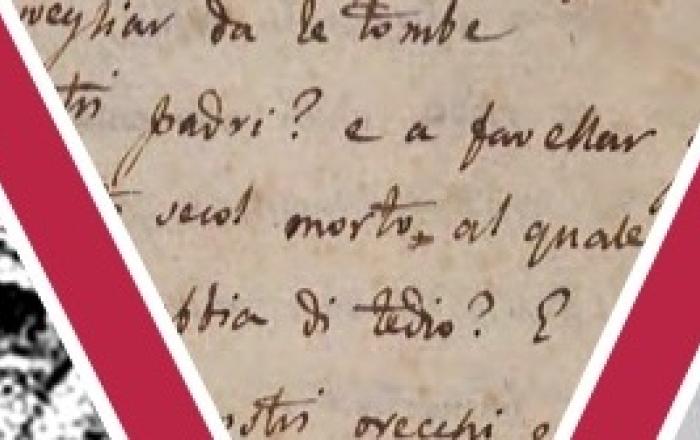 vegliar da le tombe
tri padri? e a favellar
secol morto, al quale
bbia di tedio? E
ostri orecchi